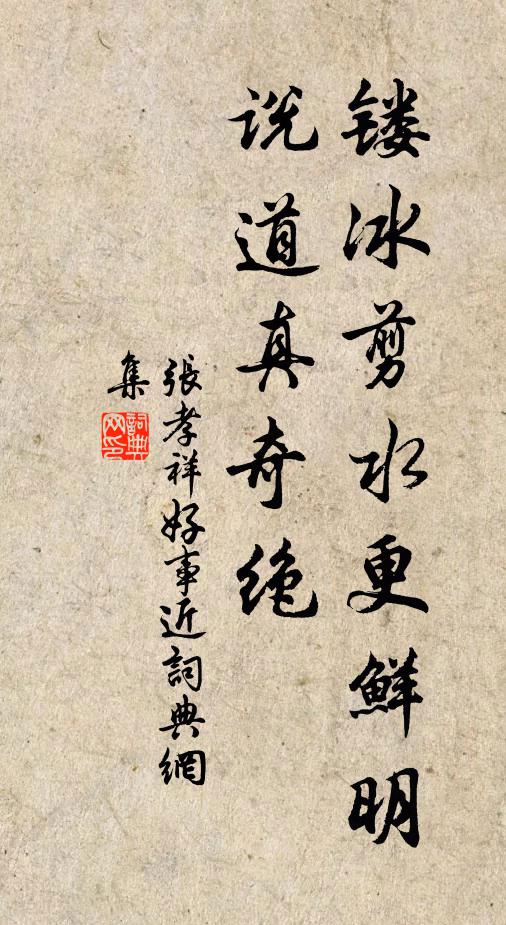 镂冰剪水更鲜明
说道真奇绝
張孝祥好事近詞典網
集
詞典
网印